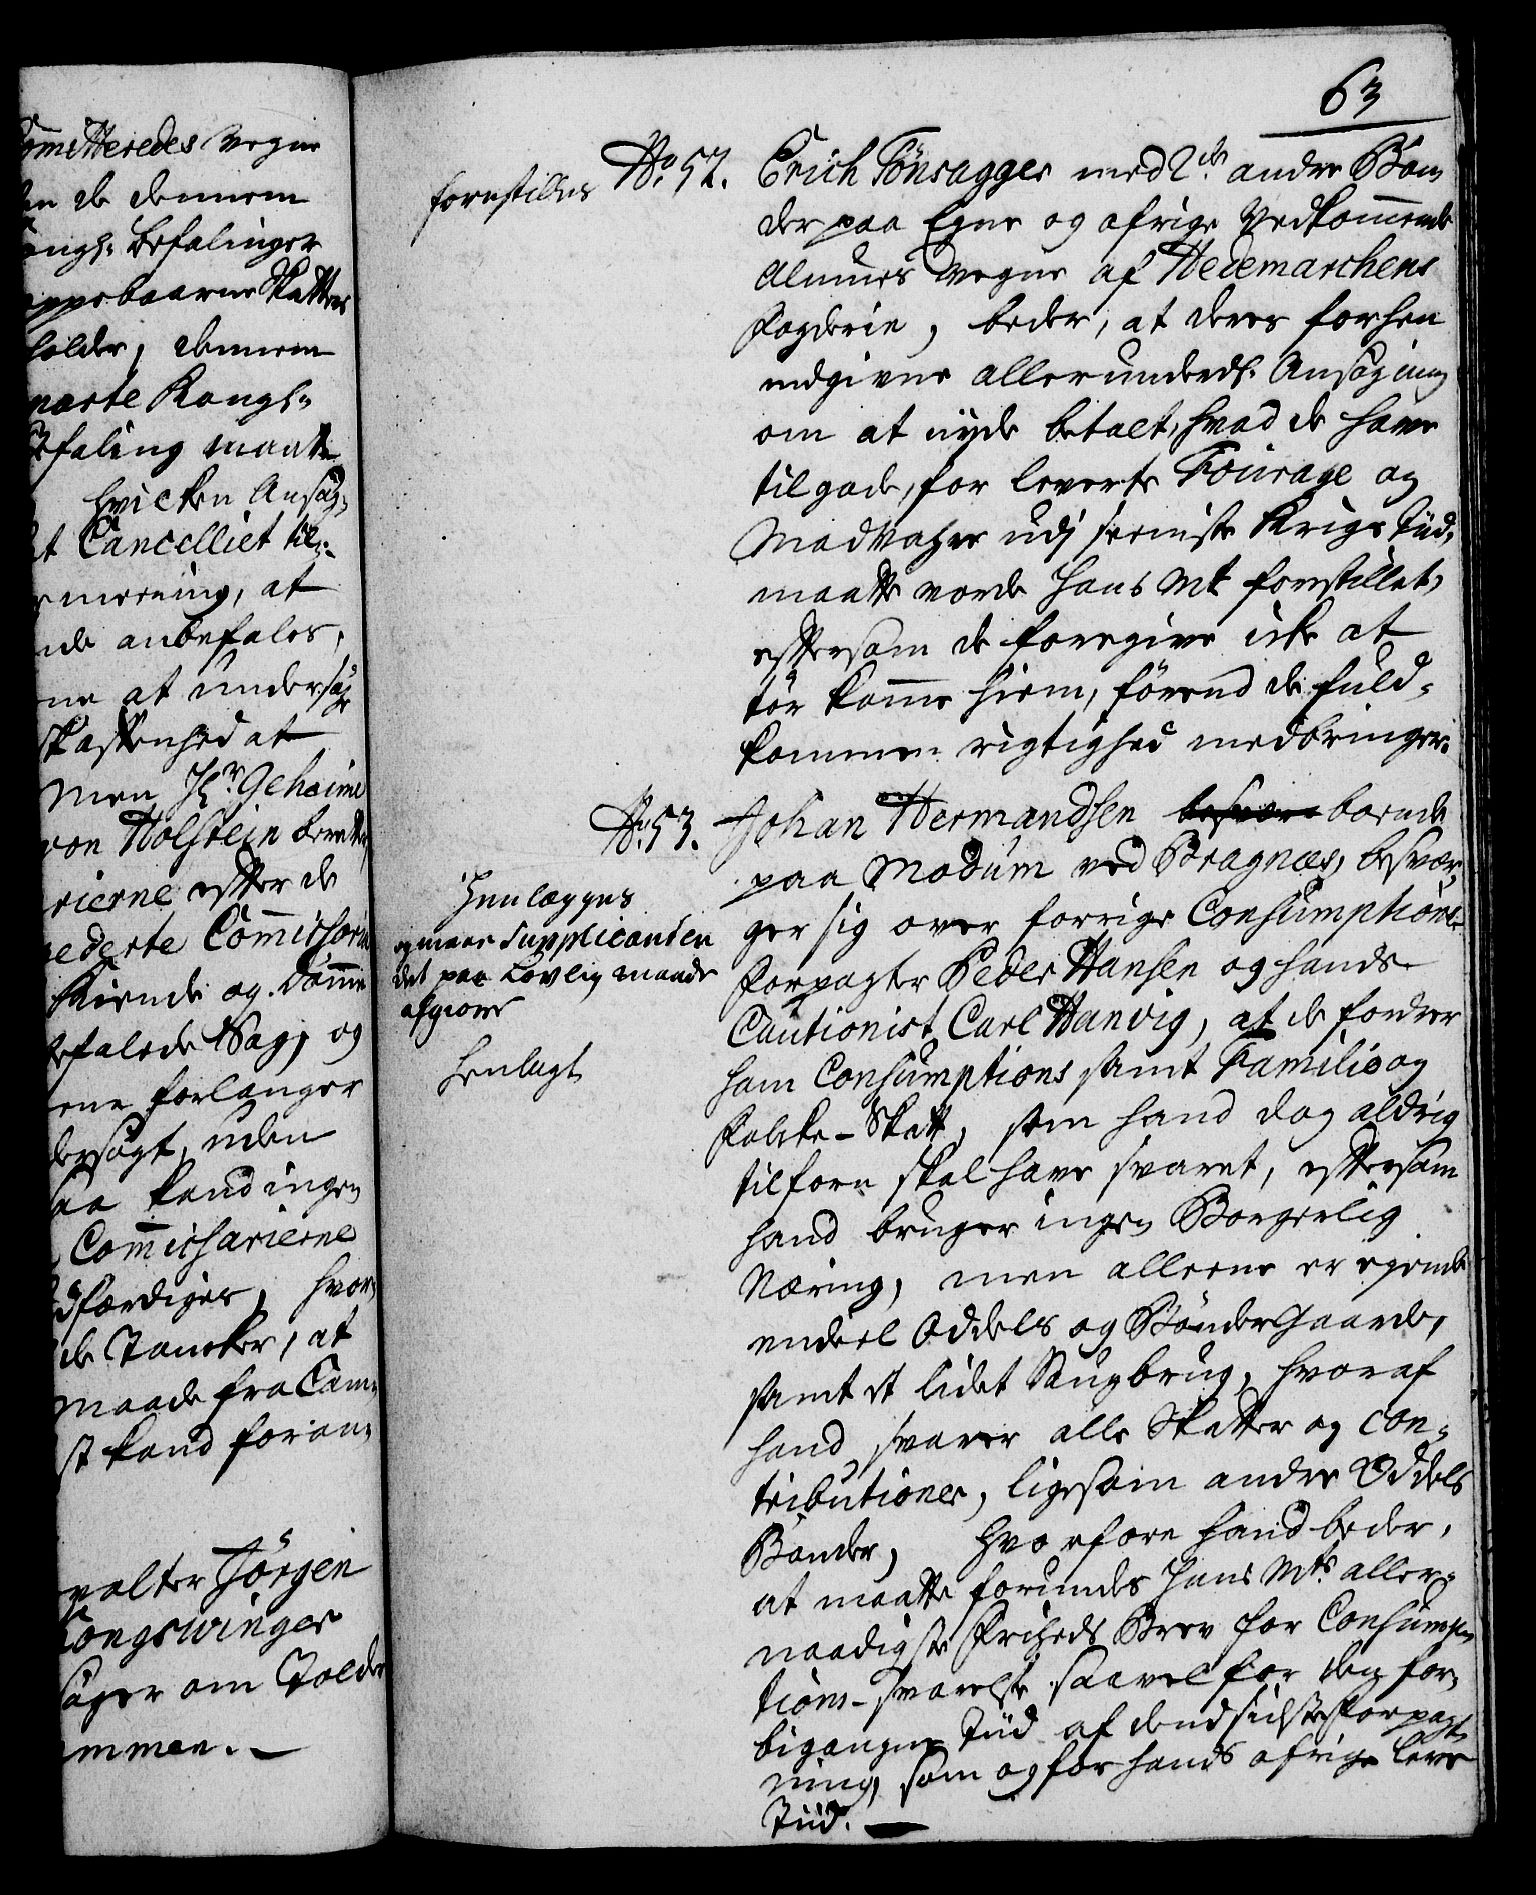 63
ommitteredes Vegne
de dennem
ongl: Befalinger
oppebaarne Skatters
holder, dennem
Kongl=
faling maatte
hvilken Ansøg=
at Cancelliet til=
meening, at
nde anbefales,
ne at undersøge
skaffenhed at
men Hr. Geheime
von Holstein beretter
rierne efter de
ederte Commissaria
Kiende og Dømme
befalede Sag, og
ene forlanger
dersøgt, uden
saa kand ingen
Commissarierne
dfærdiges, hvor,
de Tancker, at
maade fra Cam,
st kand foran,
valter Jörgen
Kongswinger
søger om Tolder
ommen. —
forestilles
No. 52. Erich Tönsagger med 2de andre Bøn,
der paa Egne og øfrige Vedkommende
Almues Vegne af Hedemarchens
Fogderie, beder, at deres forhen
indgivne allerunderd: Ansøgning
om at nyde betalt, hvad de have
tilgode, for leverte Fourage og
Madvahre udj seeniste Krigs Tiid,
maatte vorde Hans Mt forestillet,
eftersom de foregive icke at
tör komme hiem, förend de fuld=
kommen rigtighed medbringer.
No. 53. Johan Hermandsen besvær boende
paa Modum ved Bragnæs, besvær,
ger sig over forrige Consumptions
Forpagter Peder Hansen og hands
Cautionist Carl Hanvig, at de fordrer
ham Consumptions samt Familie og
Folcke-Skatt, som hand dog aldrig
tilforn skal have svaret, eftersom
hand bruger ingen Borgerlig
Næring, men alleene er eyende
endeel Oddels og Bönder Gaarde,
samt et lidet Saugbrug, hvoraf
hand svarer alle Skatter og Con=
tributioner, ligesom andre Oddels
Bönder, hvorfore hand beder,
at maatte forundes Hans Mts aller=
naadigste Friheds Brev for Consump=
tions-Svarelse saavel for den for,
bigangne Tiid af dend sidste Forpagt,
ning, som og for hands øfrige Leve
Tiid. —
Henlægges
og maae Supplicanten
det paa Lovlig maade
afgiøre
Henlagt